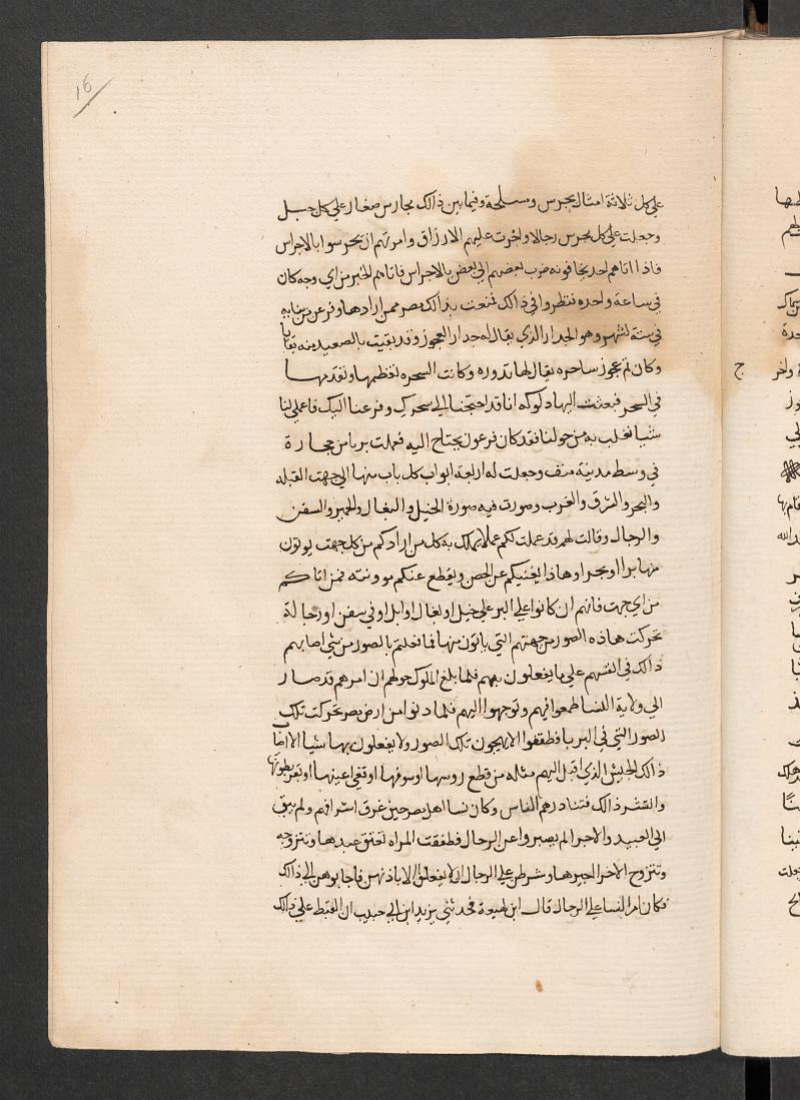 16
على كل ثلاثة امثال محرس ومسلحة وفيما بين ذالك محارس صغار على كل جبل
وجعلت على كل محرس رجالا واجرت عليهم الارزاق وامرتهم ان يحرسوا بالاجراس
فاذا اتاهم احد يخافونه ضرب بعضهم الى بعض بالاجراس فاتاهم الخبر من اي وجه كان
في ساعة واحده فنظروا في ذالك فمنعت بذالك مصر ممن ارادها وفرغ من بنايه
في ستة اشهر وهو الجدار الذي يقال له جدار العجوز وقد بقيت بالصعيد منه بقايا
وكان ثم عجوز ساحره يقال لها تدوره وكانت السحره تعظمها وتقدمها
في السحر فبعثت اليها دلوكه انا قد احتجنا الى سحرك وفزعنا اليك فاعملي لنا
شيا نغلب به من حولنا فقد كان فرعون يحتاج اليه فعملت بربا من حجارة
في وسط مدينة منف وجعلت له اربعة ابواب كل باب منها الى جهت القبله
والبحر والشرق والغرب وصورت فيه صورة الخيل والبغال والحمير والسفن
والرجال وقالت لهم قد عملت لكم عملا يهلك به كل من ارادكم من كل جهت يوتون
منها برا او بحرا وهاذا يغنيكم عن الحصن ويقطع عنكم موونته فمن اتاكم
من اي جهت فانهم ان كانوا على البر على خيل او بغال او ابل او في سفن او رجالة
تحركت هاذه الصور من جهتهم التي ياتون منها فما فعلتم بالصور من شي اصابهم
ذالك في انفسهم على ما يفعلون بهم فلما بلغ الملوك حولهم ان امرهم قد صار
الى ولاية النسا طمعوا فيهم وتوجهوا اليهم فلما دنوا من ارض مصر تحركت تلك
الصور التي في البربا فطفقوا لا يهيجون تلك الصور ولا يفعلون بها شيا الا اصاب
ذالك الجيش الذي اقبل اليهم مثله من قطع روسها او سوقها او فقي اعينها او بقر بطونها
وانتشر ذالك فتناذرهم الناس وكان نسا اهل مصر حين غرق اشرافهم ولم يبق
الى العبيد والاجرا لم يصبروا عن الرجال فطفقت المراه تعتق عبدها وتتزوجه
وتتزوج الاخرا اجيرها وشرطن على الرجال ان لا يفعلوا الا باذنهن فاجابوهن الى ذالك
فكان امر النسا على الرجال قال ابن لهيعة فحدثني يزيد ابن ابي حبيب ان القبط على ذالك
ج